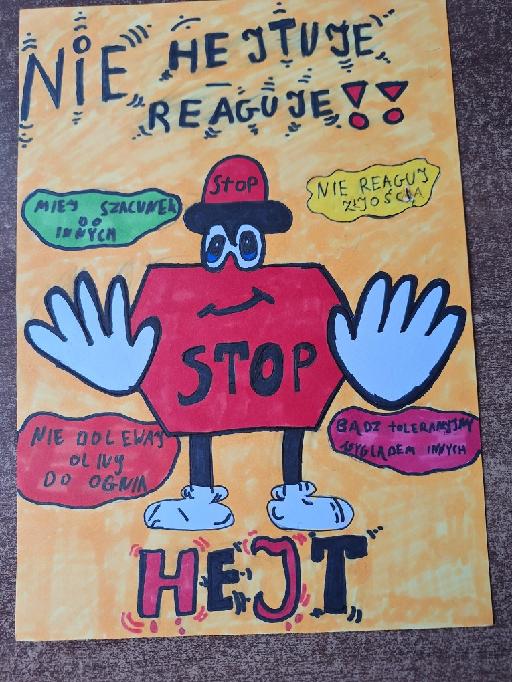 NIE HEJTUJE
REAGUJE!!
STOP
MIEJ SZACUNEK
DO
INNYCH
NIE REAGUJ
ZŁOŚCIA
STOP
NIE DOLEWAJ
OLIWY
DO OGNIA
BĄDZ toLERANCYJNY
WZGLĄDEM INNYCH
HEJT